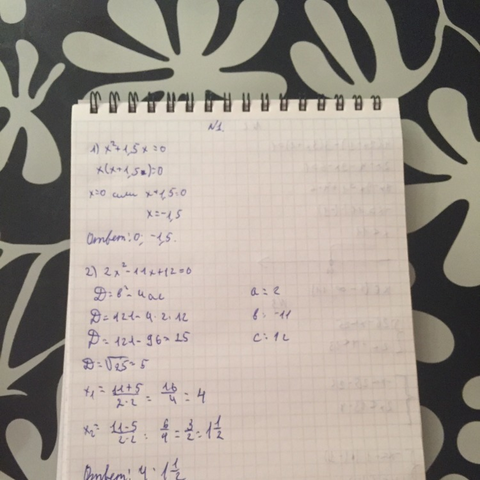 №1
1) x²+1,5x=0
x(x+1,5)=0
x=0 или x+1,5=0
x=-1,5
Ответ: 0; -1,5.
2) 2x²-11x+12=0
D=b²-4ac a=2
D=121-4·2·12 b=-11
D=121-96=25 c=12
D=√25=5
x₁=(11+5)/(2·2)=16/4=4
x₂=(11-5)/(2·2)=6/4=3/2=1 1/2
Ответ: 4; 1 1/2